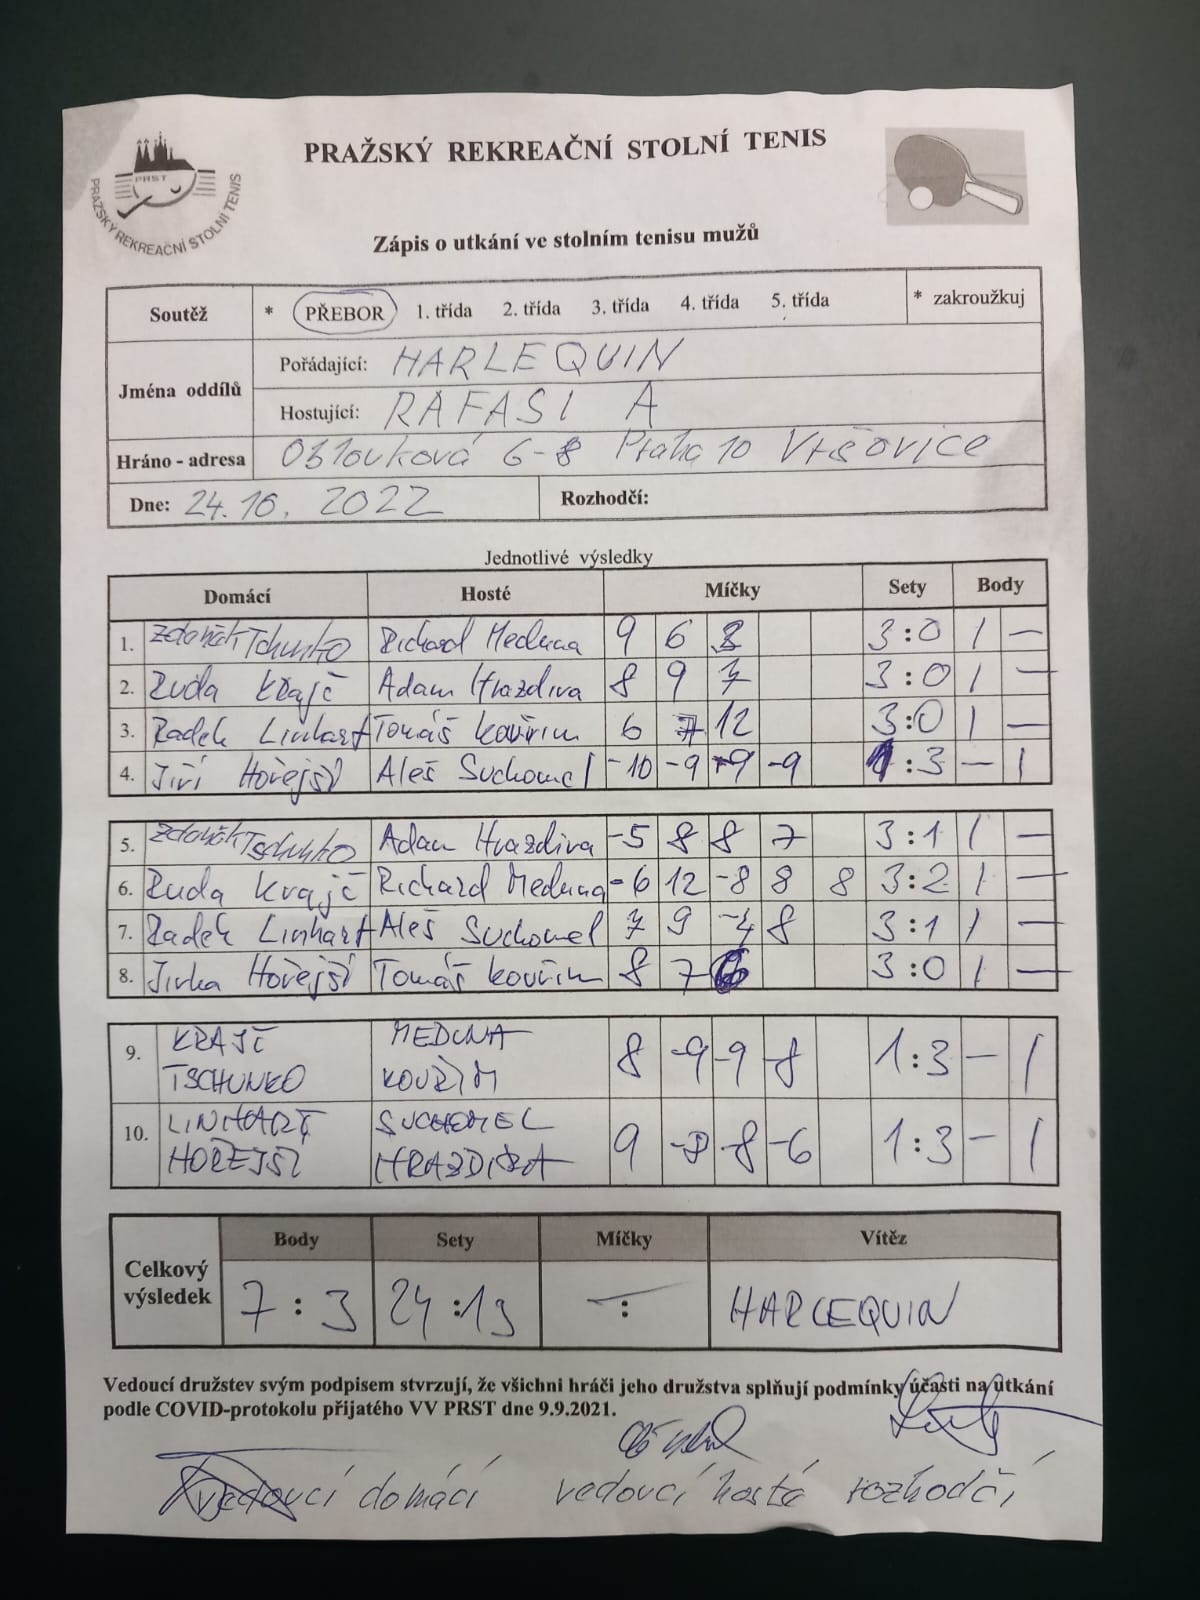 PRAŽSKÝ REKREAČNÍ STOLNÍ TENIS
PRST
PRAŽSKÝ REKREAČNÍ STOLNÍ TENIS
Zápis o utkání ve stolním tenisu mužů
Soutěž * PŘEBOR 1. třída 2. třída 3. třída 4. třída 5. třída * zakroužkuj
Jména oddílů
Pořádající: HARLEQUIN
Hostující: RAFASI A
Hráno - adresa Oblouková 6-8 Praha 10 Vršovice
Dne: 24.10. 2022 Rozhodčí:
Jednotlivé výsledky
Domácí Hosté Míčky Sety Body
1. Zdeněk Tchunko Richard Meduna 9 6 3:0 1 —
2. Ruda Krajč Adam Hrazdira 8 9 7 3:0 1 —
3. Radek Linhart Tomáš Kouřim 6 7 12 3:0 1 —
4. Jiří Hořejší Aleš Suchomel -10 -9 +9 -9 1:3 — 1
5. Zdeněk Tschunko Adam Hrazdira -5 8 8 7 3:1 1 —
6. Ruda Krajč Richard Meduna -6 12 -8 8 8 3:2 1 —
7. Radek Linhart Aleš Suchomel 7 9 -4 8 3:1 1 —
8. Jirka Hořejší Tomáš Kouřim 8 7 6 3:0 1 —
9. KRAJČ MEDUNA 8 -9 -9 -8 1:3 — 1
TSCHUNKO KOUŘIM
10. LINHART SUCHOMEL 9 -8 -6 1:3 — 1
HOŘEJŠÍ HRAZDIRA
Celkový výsledek
Body Sety Míčky Vítěz
7 : 3 24 : 19 : HARLEQUIN
Vedoucí družstev svým podpisem stvrzují, že všichni hráči jeho družstva splňují podmínky účasti na utkání
podle COVID-protokolu přijatého VV PRST dne 9.9.2021.
vedoucí domácí vedoucí hosté rozhodčí